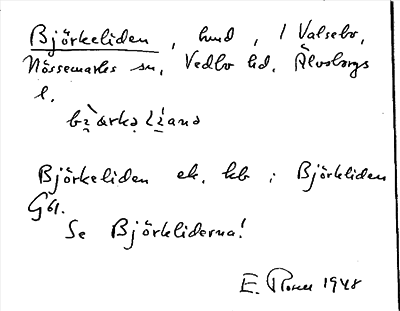 Björkeliden, hmd, / Valsebo,
Nössemarks sn, Vedbo hd. Älvsborgs
l.
Björkeliden ek. kb ; Björkliden
GK.
Se Björkliderna!
E. 1948